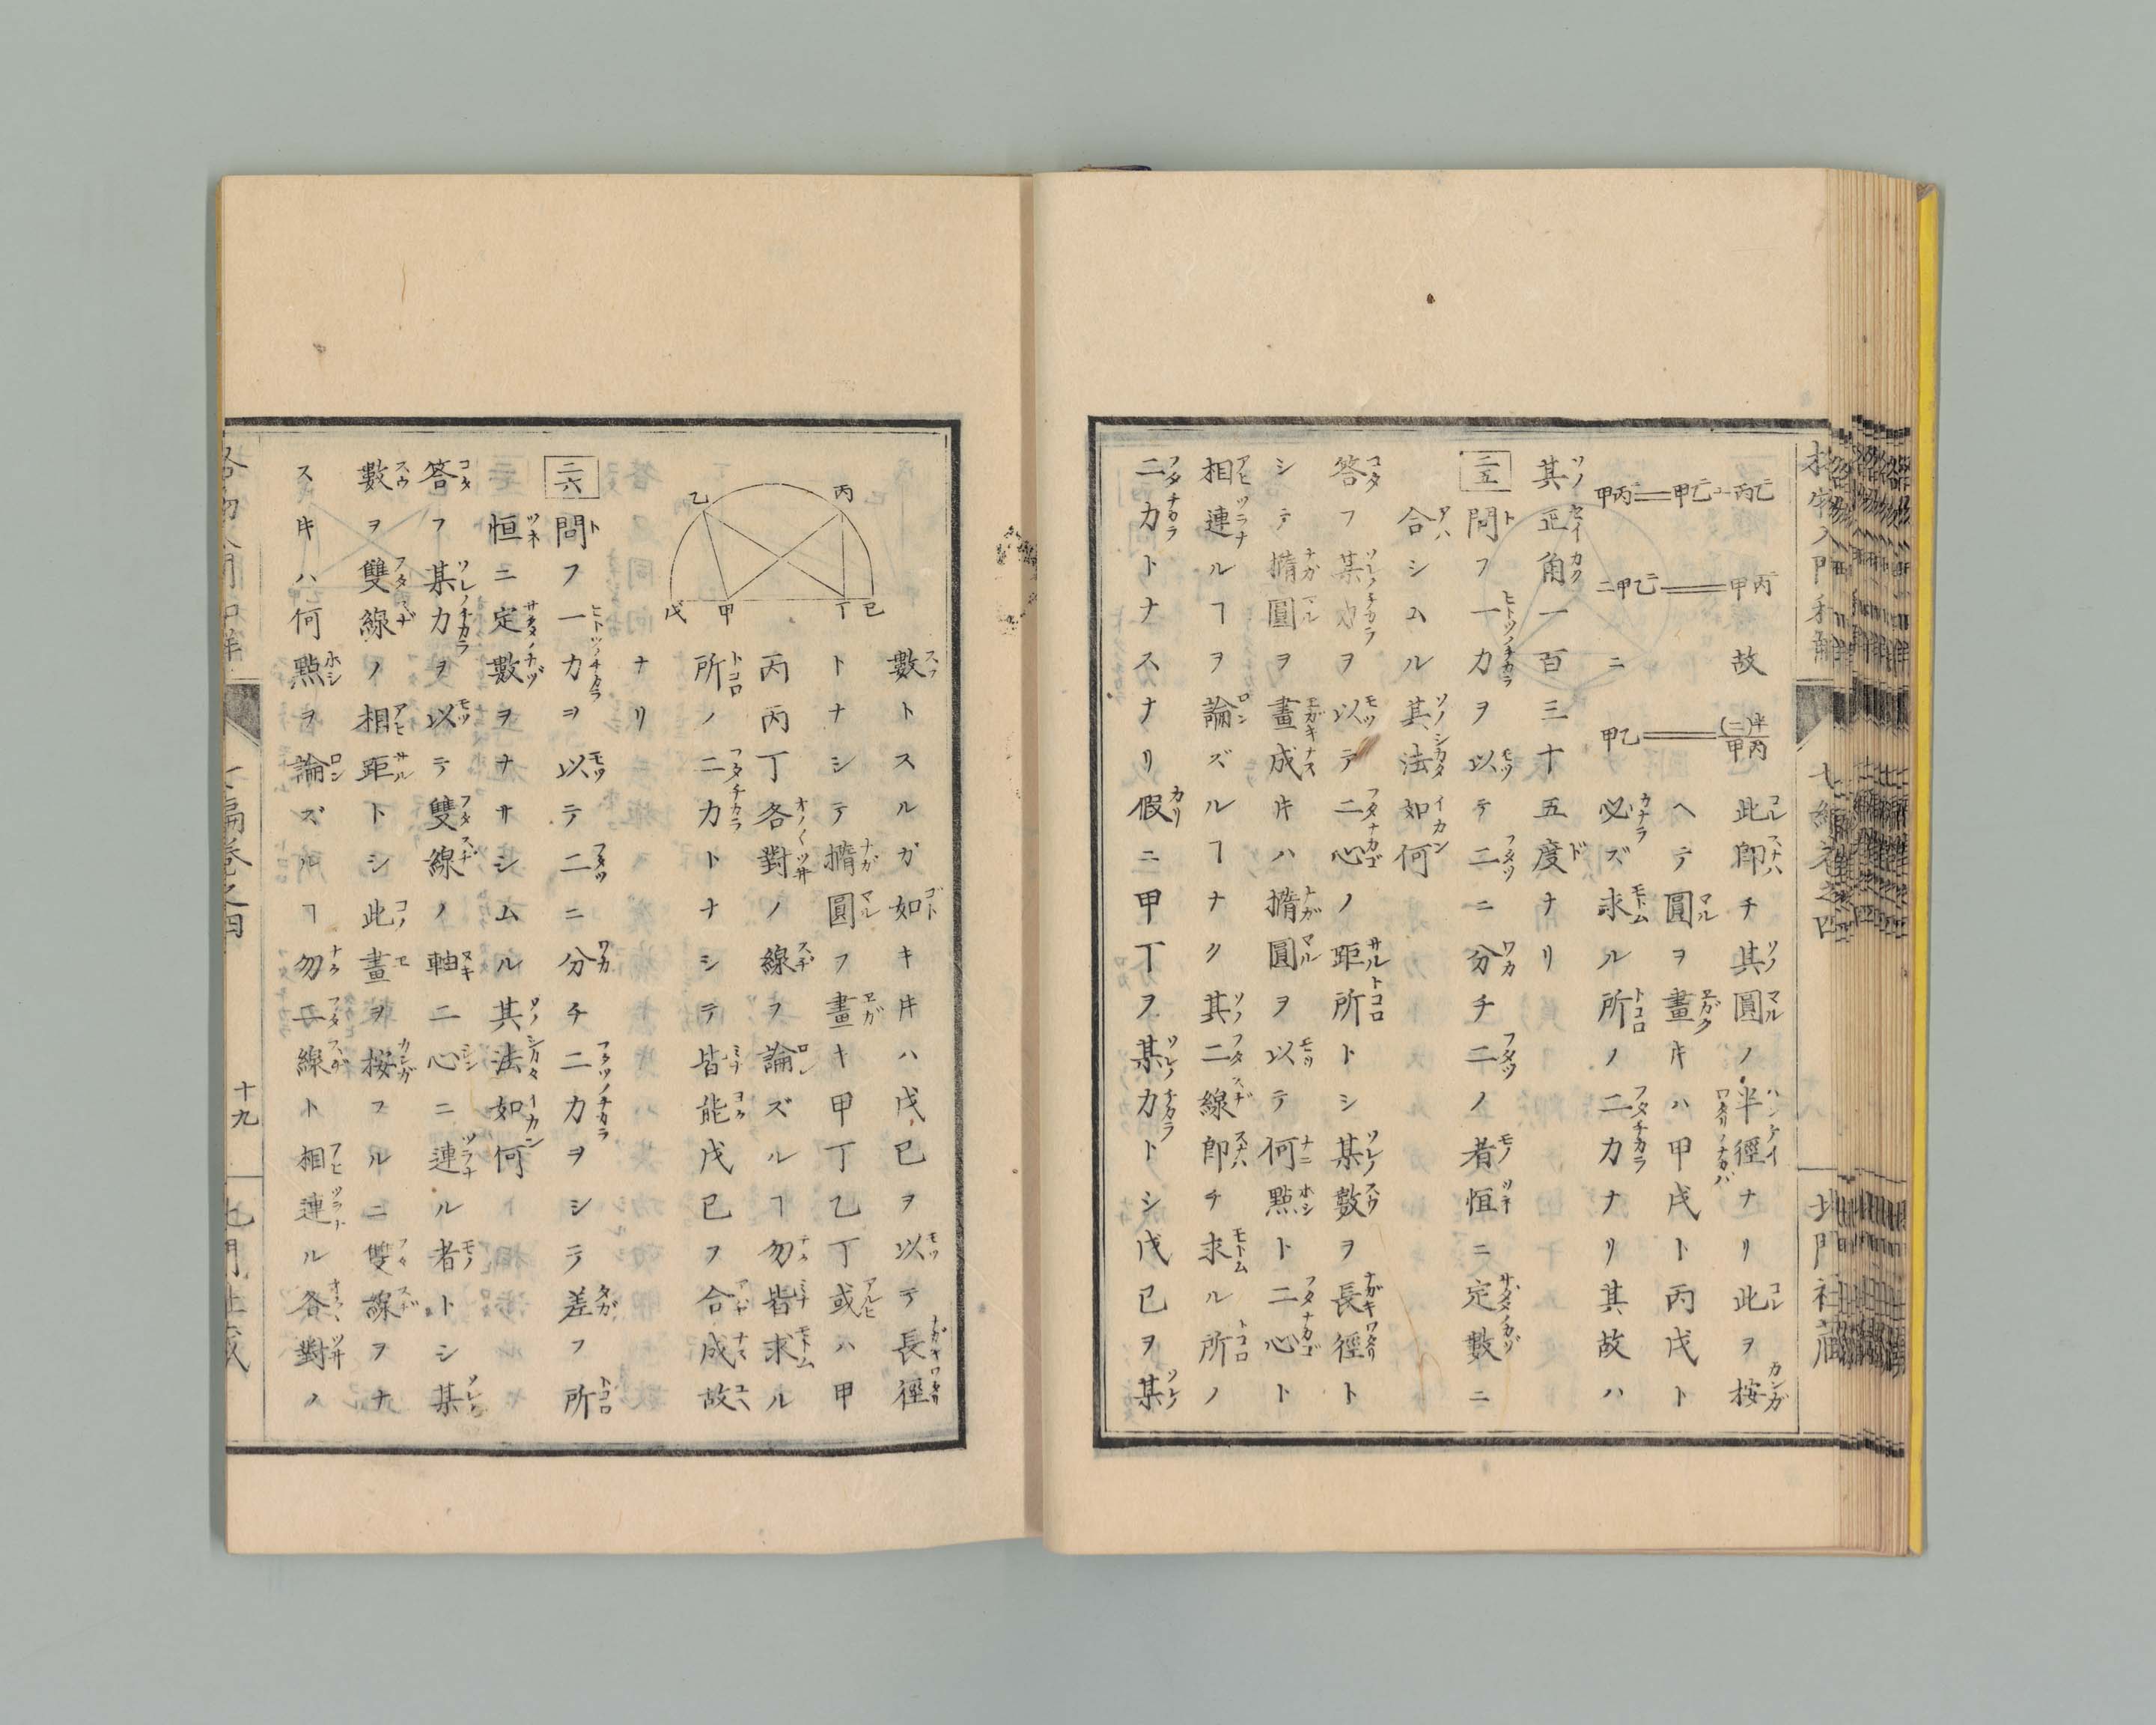 格物入門和解
七編巻之四
北門社藏
甲丙二＝甲乙二＋丙乙二
二甲乙二＝甲丙二
故
甲乙＝甲丙／半(二)
此即チ其圓ノ半徑ナリ此ヲ按
ヘテ圓ヲ畫キハ甲戌ト丙戊ト
必ズ求ル所ノ二力ナリ其故ハ
其正角一百三十五度ナリ
二五
問フ一力ヲ以テ二ニ分チ二ノ者恒ニ定數ニ
合シムル其法如何
答フ某力ヲ以テ二心ノ距所トシ某數ヲ長徑ト
シテ撱圓ヲ畫成キハ撱圓ヲ以テ何點ト二心ト
相連ルヿヲ論ズルヿナク其二線即チ求ル所ノ
二力トナスナリ假ニ甲丁ヲ某力トシ戊已ヲ某
數トスルガ如キキハ戊已ヲ以テ長徑
トナシテ撱圓ヲ畫キ甲丁乙丁或ハ甲
丙丙丁各對ノ線ヲ論ズルヿ勿皆求ル
所ノ二力トナシテ皆能戊已ヲ合成故
ナリ
乙
丙
戊
甲
丁
已
二六
問フ一力ヲ以テ二ニ分チ二力ヲシテ差フ所
恒ニ定數ヲナサシムル其法如何
答フ某力ヲ以テ雙線ノ軸二心ニ連ル者トシ某
數ヲ雙線ノ相距トシ此畫ヲ按フルニ雙線ヲナ
スキハ何點ヲ論ズルヿ勿二線ト相連ル各對ノ
格物入門和解
七編巻之四
十九
北門社藏